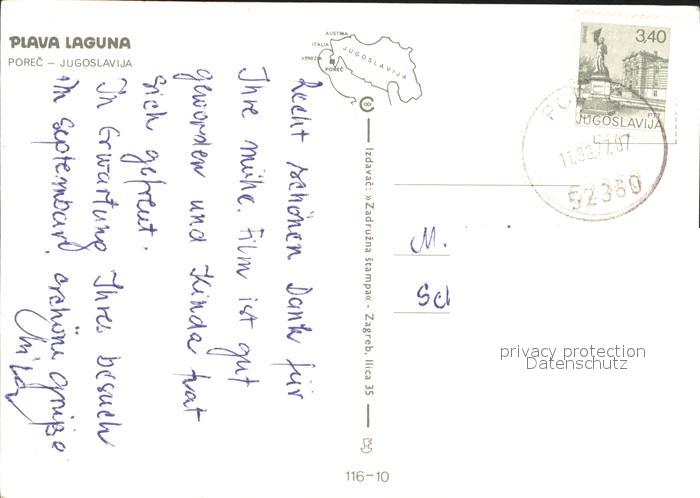 PLAVA LAGUNA
POREČ – JUGOSLAVIJA
AUSTRIA
ITALIA
VENEZIA
POREČ
JUGOSLAVIJA
3,40
PTT
JUGOSLAVIJA
11.08.77.07
52360
Recht schönen Dank für
Ihre mühe. Film ist gut
geworden und Kinda hat
sich gefreut.
In Erwartung Ihres besuch
im September, schöne grüße
Izdavač: »Zadružna štampa« - Zagreb, Ilica 35
M.
Sch
privacy protection
Datenschutz
116-10